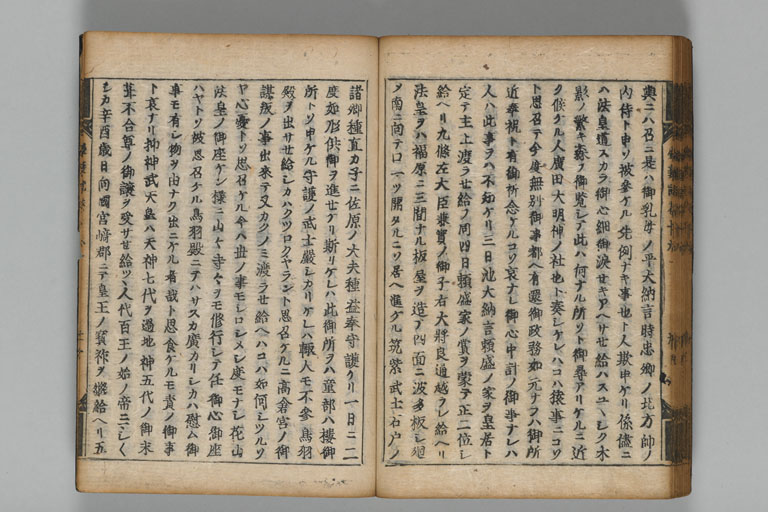 輿ニハ召ニ是ハ御乳母ノ平大納言時忠卿ノ北方帥ノ
内侍ト申ソ被參ケル先例ナキ事也ト人欺申ケリ係儘ニ
ハ法皇道スカラ御心細御涙セキアヘサセ給ハスユヽシク木
影ノ繁キ森ヲ御覧シテ此ハ何ナル所ソト御尋アリケルニ近
ク候ケル人廣田大明神ノ社也ト奏シケレハコハ猿事ニコソ
ト思召テ今度無別御事都ヘ有還御政務如元ナラハ御所
近奉祝ト有御祈念ケルコソ哀ナレ御心中計ノ御事ナレハ
人ハ此事ヲハ不知ケリ三日池大納言頼盛ノ家ヲ皇居ト
定テ主上渡ラセ給フ同四日頼盛家ノ賞ヲ蒙テ正二位シ
給ヘリ九條左大臣兼實ノ御子右大將良通越ラレ給ヘリ
法皇ヲハ福原ニ三間ナル板屋ヲ造テ四面ニ波多板シ廻
メ南ニ向テ口一ツ開タルニソ居ヘ進ケル筑紫武士石戸ノ
諸卿種直カ子ニ佐原ノ大夫種益奉守護ケリ一日ニ二
度如形供御ヲ進セケリ斯リケレハ此御所ヲハ童部ハ樓御
所トソ申ケル守護ノ武士嚴シカリケレハ輒人モ不參鳥羽
殿ヲ出サセ給シカハクツロクヤラント思召ケルニ高倉宮ノ御
謀叛ノ事出来テ又カクノミ渡ラセ給ヘハコハ如何シツルソ
ヤ心憂トソ思召ケル今ハ世ノ事モシロシメシ度モナシ花山
法皇ノ御座ケン様ニ山々寺々ヲモ修行シテ任御心御座
ハヤトソ被思召ケル鳥羽殿ニテハサスカ廣カリシカハ慰ム御
事モ有シ物ヲ由ナク出ニケル者哉ト思食ケルモ責ノ御事
ト哀ナリ抑神武天皇ハ天神七代ヲ過地神五代ノ御末
葺不合尊ノ御讓ヲ受サセ給ツヽ人代百王ノ始ノ帝ニマシ〳〵
シカ辛酉歳日向國宮崎郡ニテ皇王ノ寳祚ヲ繼給ヘリ五